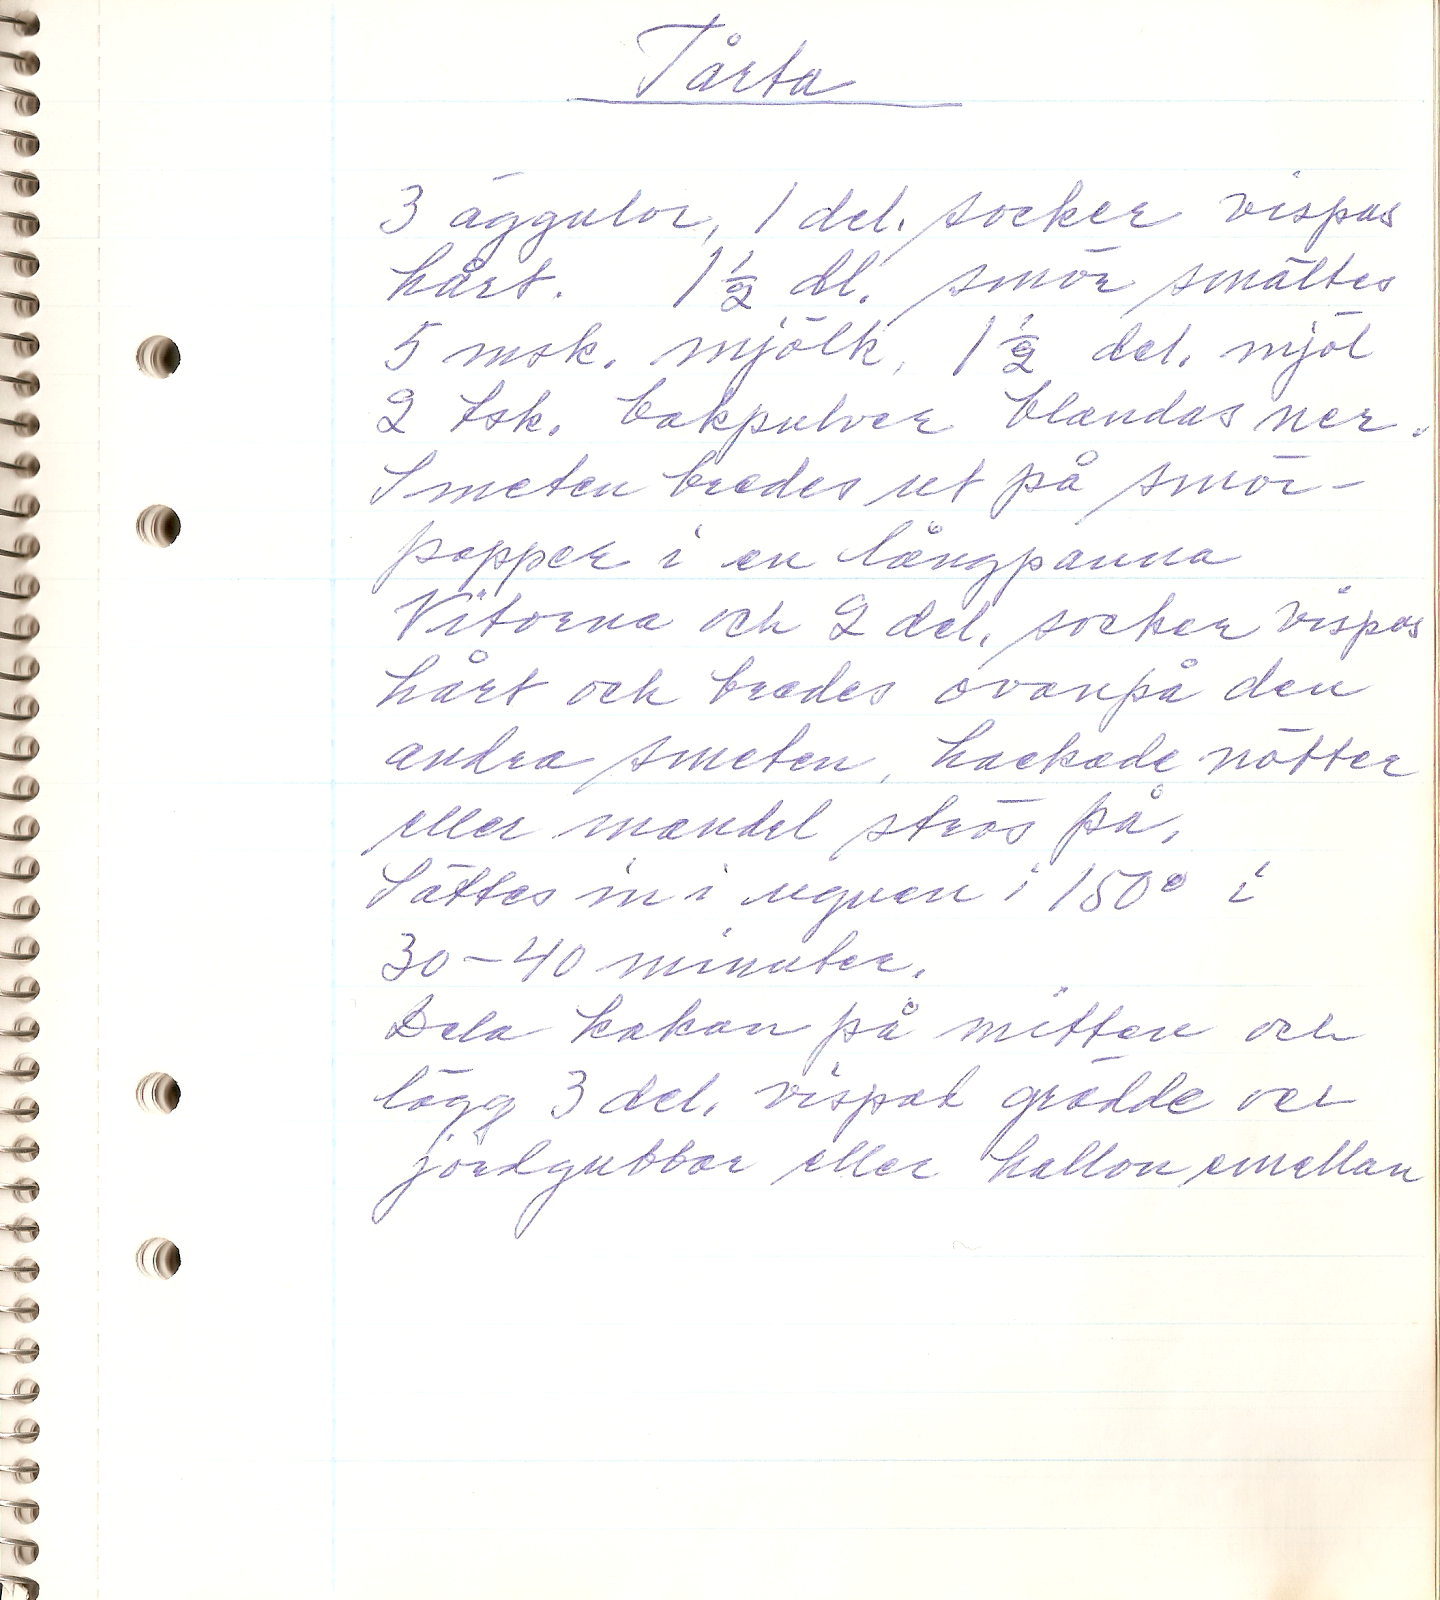 Tårta
3 äggulor, 1 del. socker vispas
hårt. 1 1/2 dl. smör smältes
5 msk. mjölk, 1 1/2 del. mjöl
2 tsk. bakpulver blandas ner.
Smeten bredes ut på smör-
papper i en långpanna
Vitorna och 2 del. socker vispas
hårt och bredes ovanpå den
andra smeten, hackade nötter
eller mandel strös på.
Sättes in i ugnen i 150° i
30-40 minuter.
Dela kakan på mitten och
lägg 3 del. vispad grädde och
jordgubbar eller hallon emellan